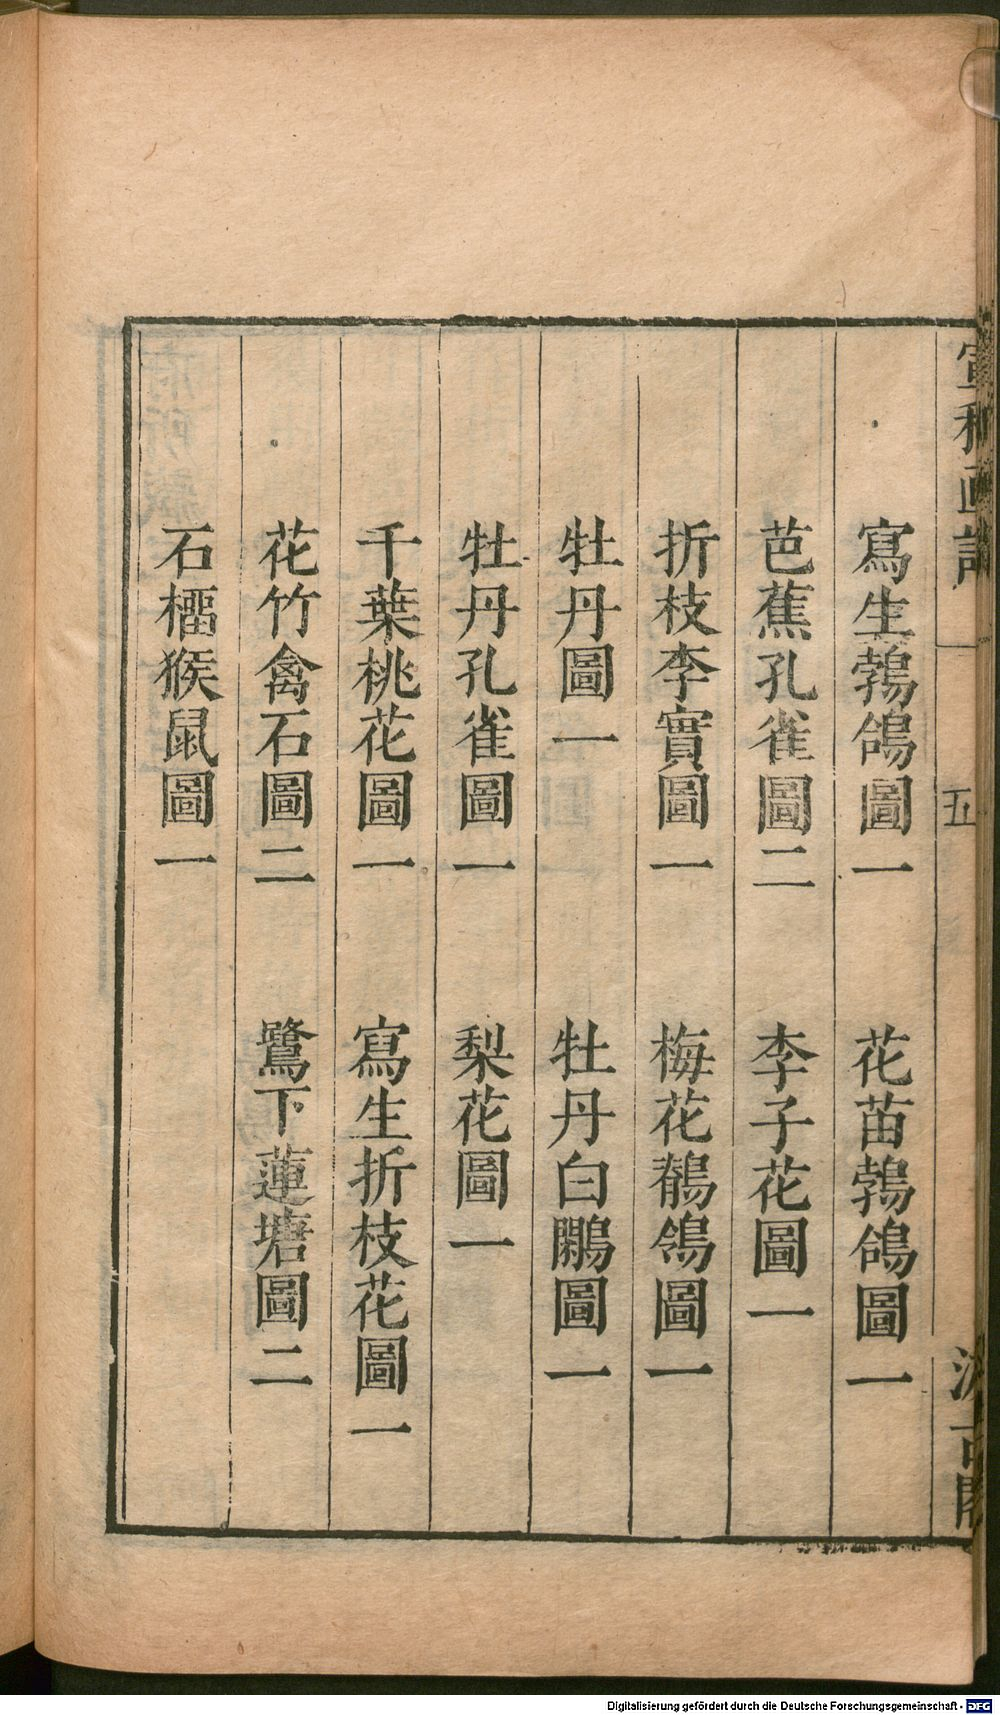 宣和画譜 五 汲古閣
寫生鵓鴿圖一 花苗鵓鴿圖一
芭蕉孔雀圖二 李子花圖一
折枝李實圖一 梅花鶺鴒圖一
牡丹圖一 牡丹白鷴圖一
牡丹孔雀圖一 梨花圖一
千葉桃花圖一 寫生折枝花圖一
花竹禽石圖二 鷺下蓮塘圖二
石榴猴鼠圖一
Digitalisierung gefördert durch die Deutsche Forschungsgemeinschaft - DFG